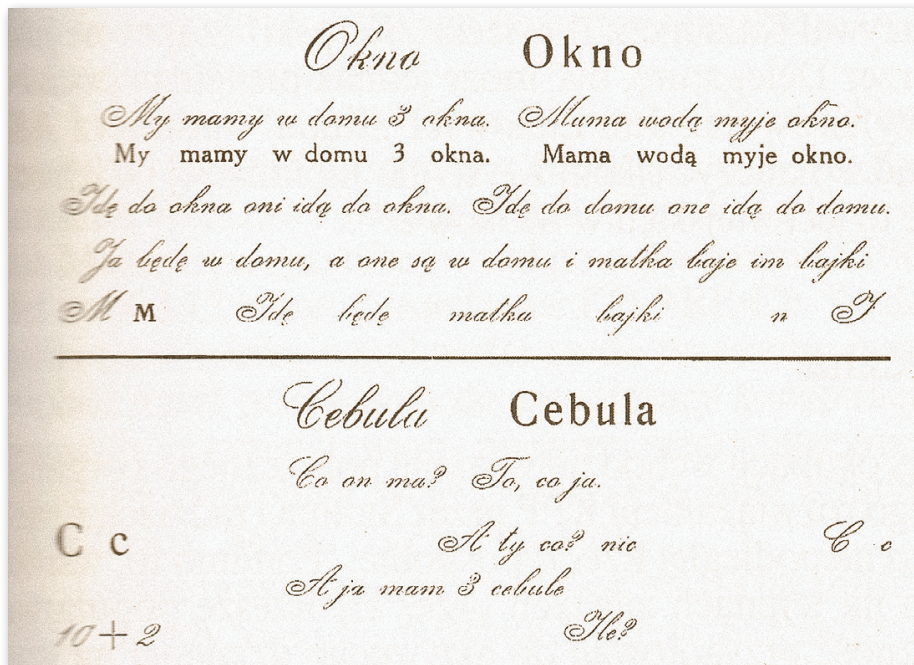 Okno Okno
My mamy w domu 3 okna. Mama wodą myje okno.
My mamy w domu 3 okna. Mama wodą myje okno.
Idę do okna oni idą do okna. Idę do domu one idą do domu.
Ja będę w domu, a one są w domu i matka baje im bajki
M M Idę będę matka bajki n I
Cebula Cebula
Co on ma? To, co ja.
C c A ty co? nic C c
A ja mam 3 cebule
10+2 Ile?